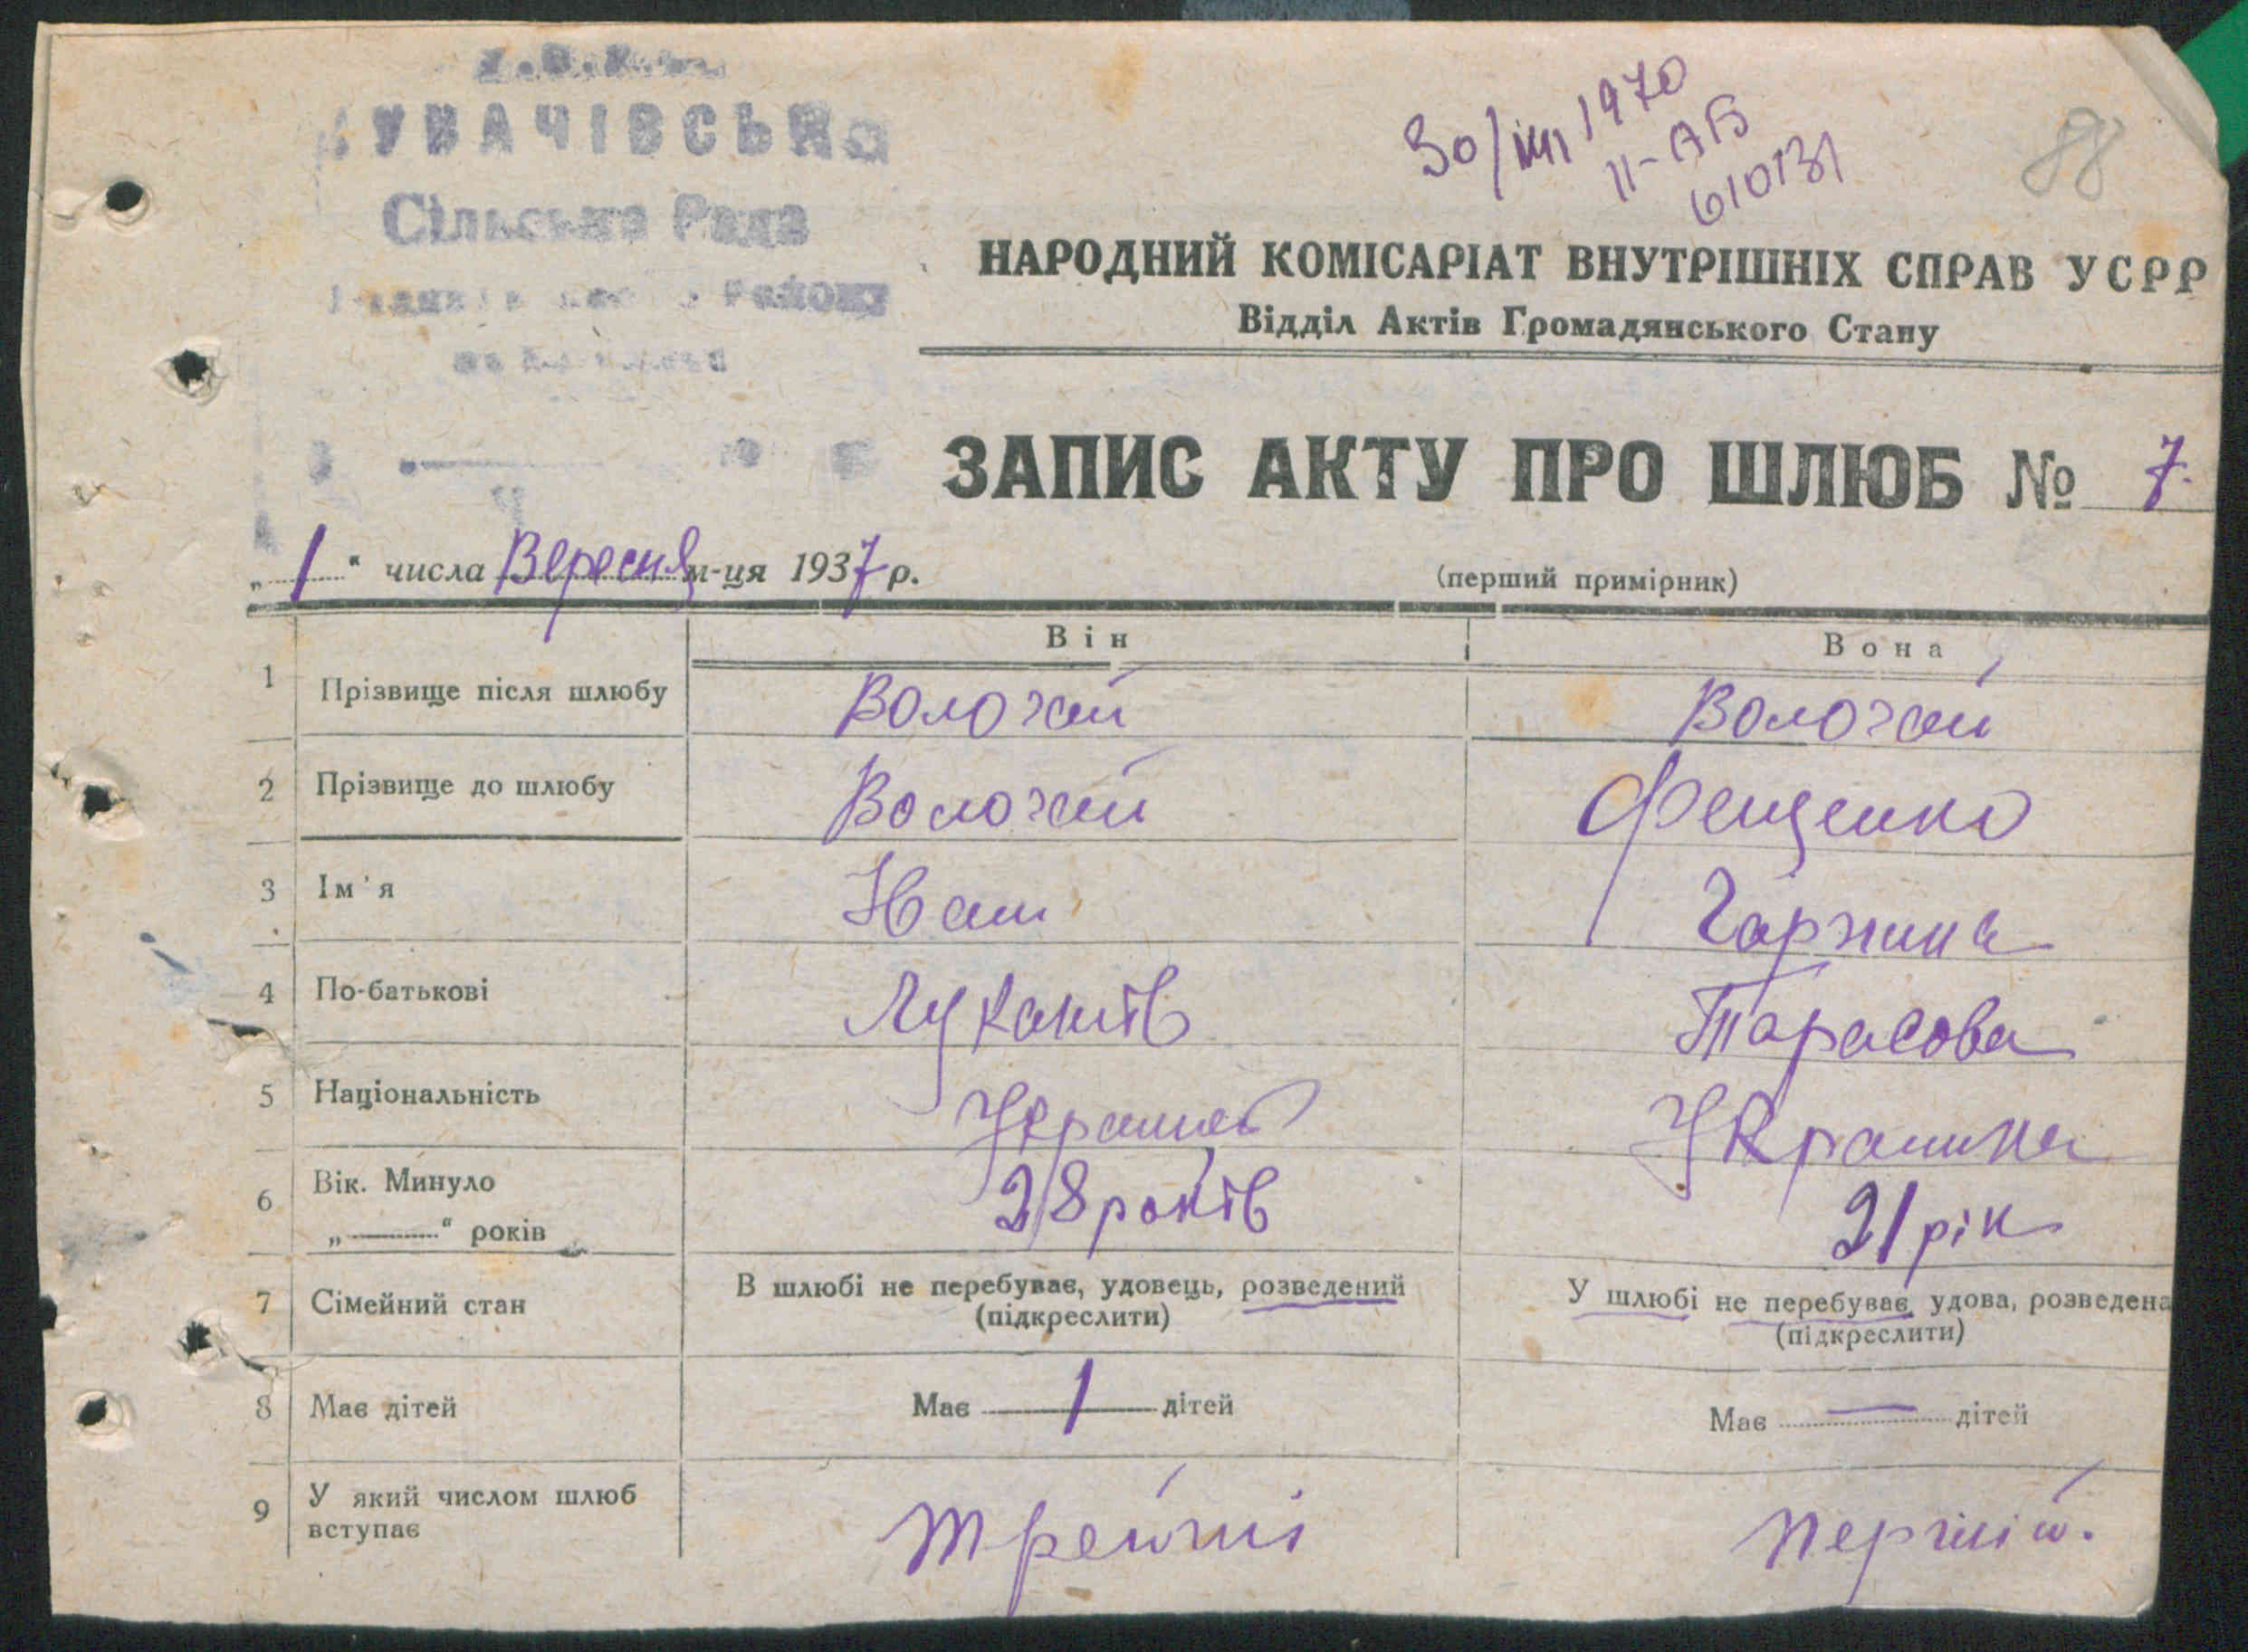 УВАЧІВСЬКА
Сільська Рада
Району
30/VIII 1970
II-АБ
610131
88
НАРОДНИЙ КОМІСАРІАТ ВНУТРІШНІХ СПРАВ УСРР
Відділ Актів Громадянського Стану
ЗАПИС АКТУ ПРО ШЛЮБ № 7.
„ 1 “ числа Вересня м-ця 1937 р.
(перший примірник)
Він Вона
1 Прізвище після шлюбу Волочай Волочай
2 Прізвище до шлюбу Волочай Фещенко
3 Ім'я Іван
4 По-батькові Лукатів Тарасова
5 Національність Українец Украинка
6 Вік. Минуло „ “ років 28 років 21 рік
7 Сімейний стан В шлюбі не перебував, удовець, розведений (підкреслити) У шлюбі не перебував, удова, розведена (підкреслити)
8 Має дітей Має 1 дітей Має — дітей
9 У який числом шлюб вступає Трейтій перший.